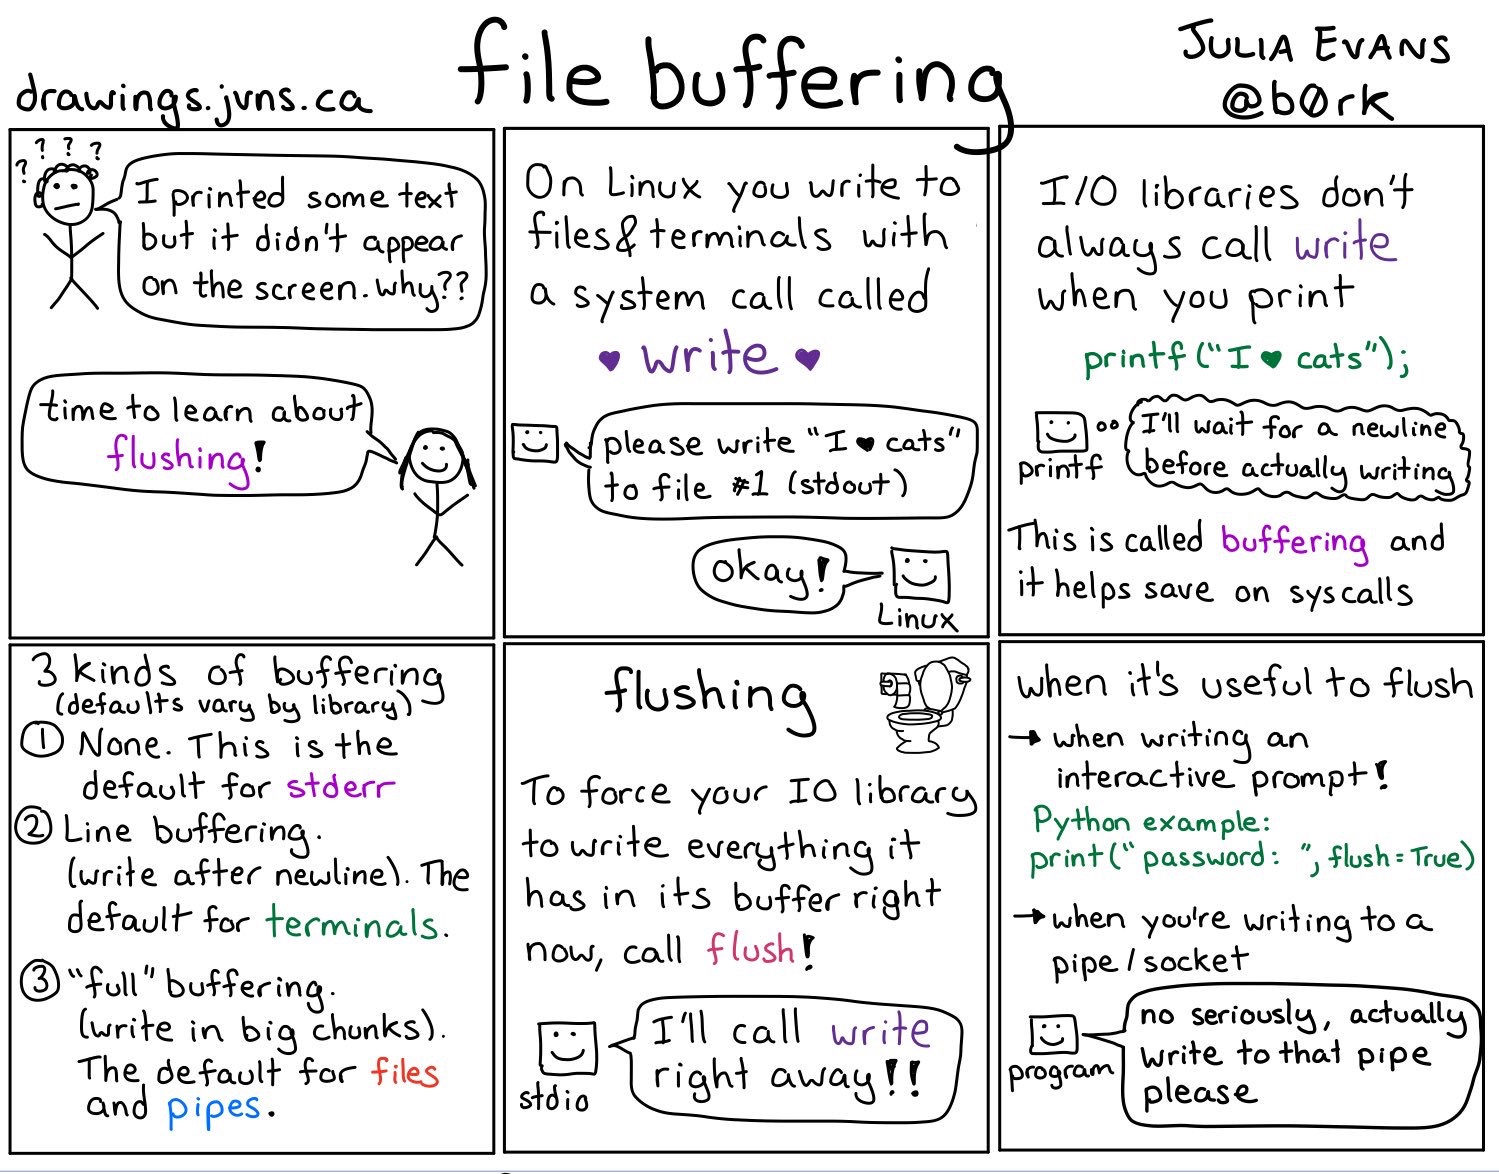 drawings.jvns.ca
file buffering
JULIA EVANS
@b0rk
? ? ? ?
I printed some text
but it didn't appear
on the screen. why??
time to learn about
flushing!
On Linux you write to
files & terminals with
a system call called
♥ write ♥
please write "I ♥ cats"
to file #1 (stdout)
okay!
Linux
I/O libraries don't
always call write
when you print
printf("I ♥ cats");
I'll wait for a newline
before actually writing
printf
This is called buffering and
it helps save on syscalls
3 kinds of buffering
(defaults vary by library)
① None. This is the
default for stderr
② Line buffering.
(write after newline). The
default for terminals.
③ "full" buffering.
(write in big chunks).
The default for files
and pipes.
flushing
To force your IO library
to write everything it
has in its buffer right
now, call flush!
I'll call write
right away!!
stdio
when it's useful to flush
→ when writing an
interactive prompt!
Python example:
print("password: ", flush=True)
→ when you're writing to a
pipe/socket
no seriously, actually
write to that pipe
please
program